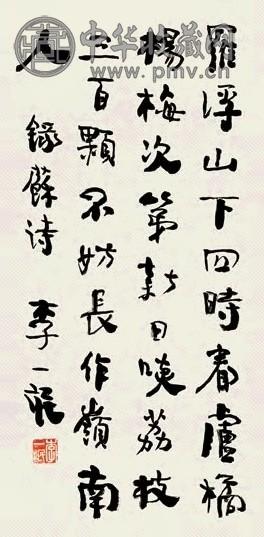 羅浮山下四時春盧橘
楊梅次第新日啖荔枝
三百顆不妨長作嶺南
人
錄蘇诗 李一氓
中华收藏网
www.pmv.cn